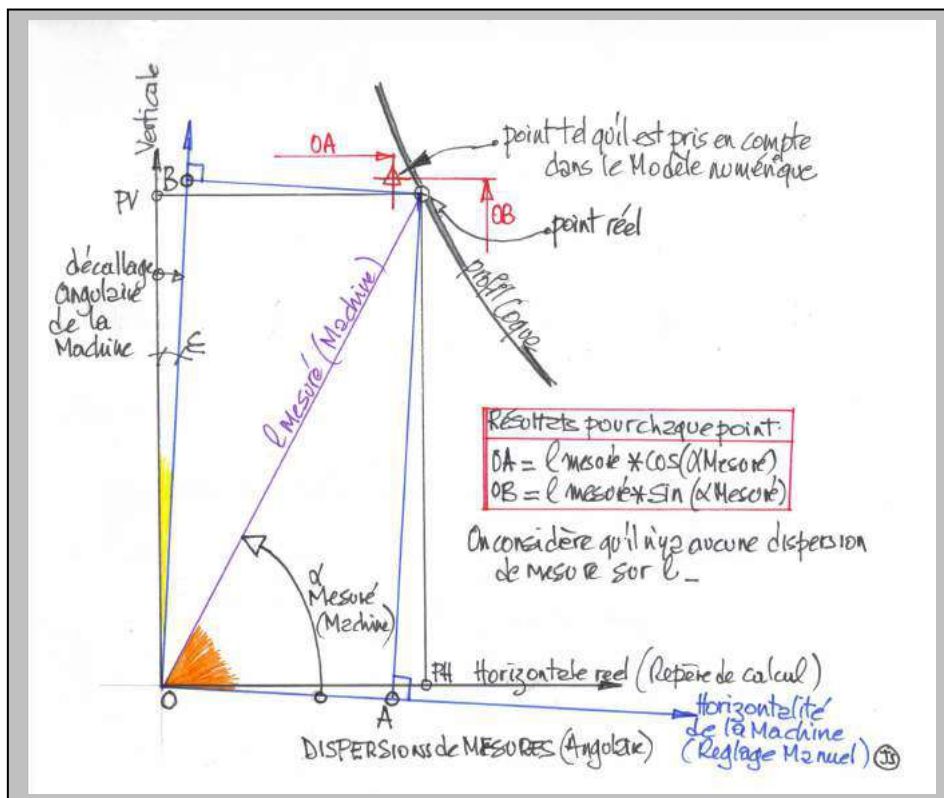 Verticale
OA
point tel qu'il est pris en compte
dans le Modèle numérique
B
PV
OB
point réel
décallage
angulaire
de la
Machine
ε
l Mesuré (Machine)
profil Coque
Résultats pour chaque point.
OA = l mesuré * cos (α Mesuré)
OB = l mesuré * sin (α Mesuré)
On considère qu'il n'y a aucune dispersion
de mesure sur l _
α
Mesuré
(Machine)
PH Horizontale reel (Repère de calcul)
O
A
Horizontalité
de la Machine
(Reglage Manuel) JS
DISPERSIONS de MESURES (Angulaire)